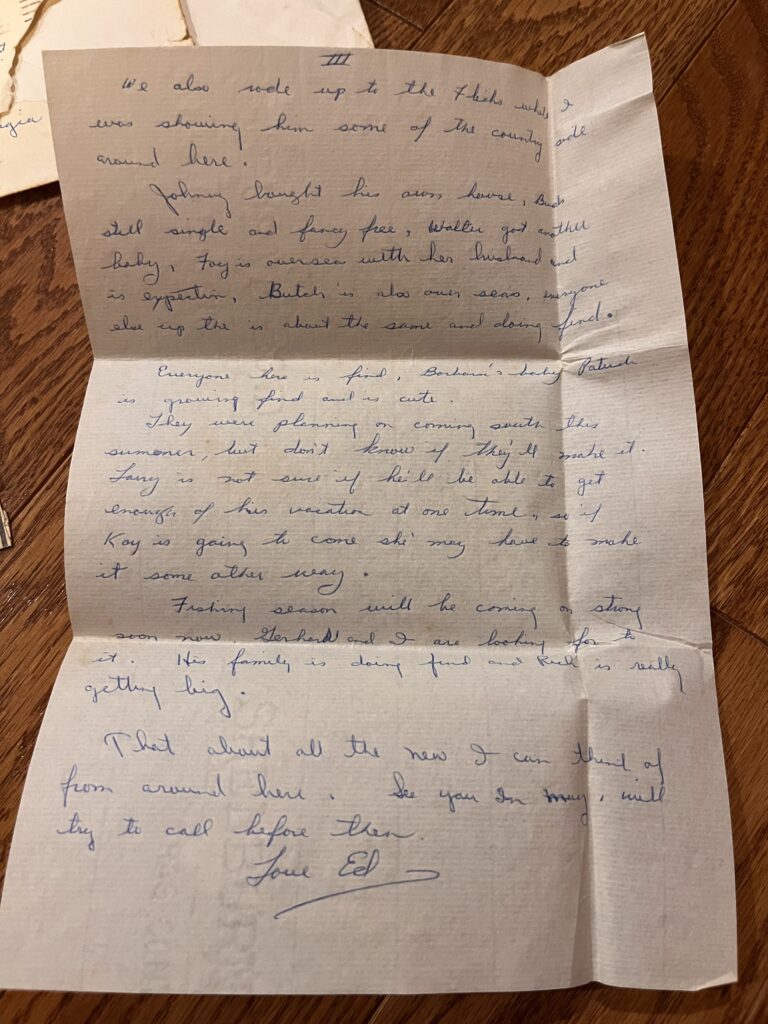 III
We also rode up to the while I
was showing him some of the country side
around here.
Johnny bought his own house, Bud's
still single and fancy free, Walter got another
baby, Fay is oversea with her husband and
is expectin, Butch is also over seas, everyone
else up the is about the same and doing find.
Everyone here is find, Barbara's baby Patrick
is growing find and is cute.
They were planning on coming south this
summer, but don't know if they'll make it.
Larry is not sure if he'll be able to get
enough of his vacation at one time, so if
Kay is going to come she may have to make
it some other way.
Fishing season will be coming on strong
soon now. Gerhard and I are looking for to
it. His family is doing find and Rick is really
getting big.
That about all the new I can think of
from around here. See you In may, will
try to call before then.
Love Ed